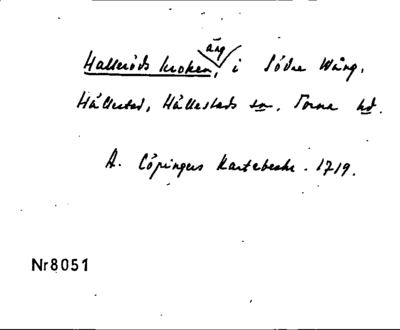 Halleröds kroken, äng i Södra Wång,
Hällestad, Hällestads sn. Torna hd.
A. Cöpingers Kartebeskr. 1719.
Nr8051